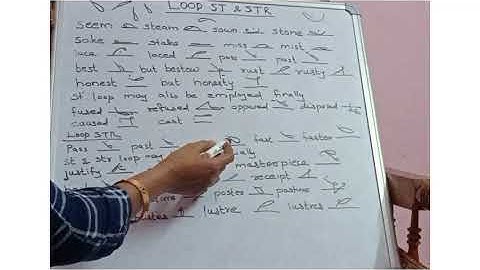 LOOP ST & STR
seem steam sown stone
soke stake miss mist
lace laced pass past
best but bestow rust rusty
honest but honesty
st loop may also be employed finally
fused refused opposed disposed
caused cast
LOOP STR
Pass past fast faster
st & str loop may ially
justify masterpiece
receipt
poster posture
lustre lustres